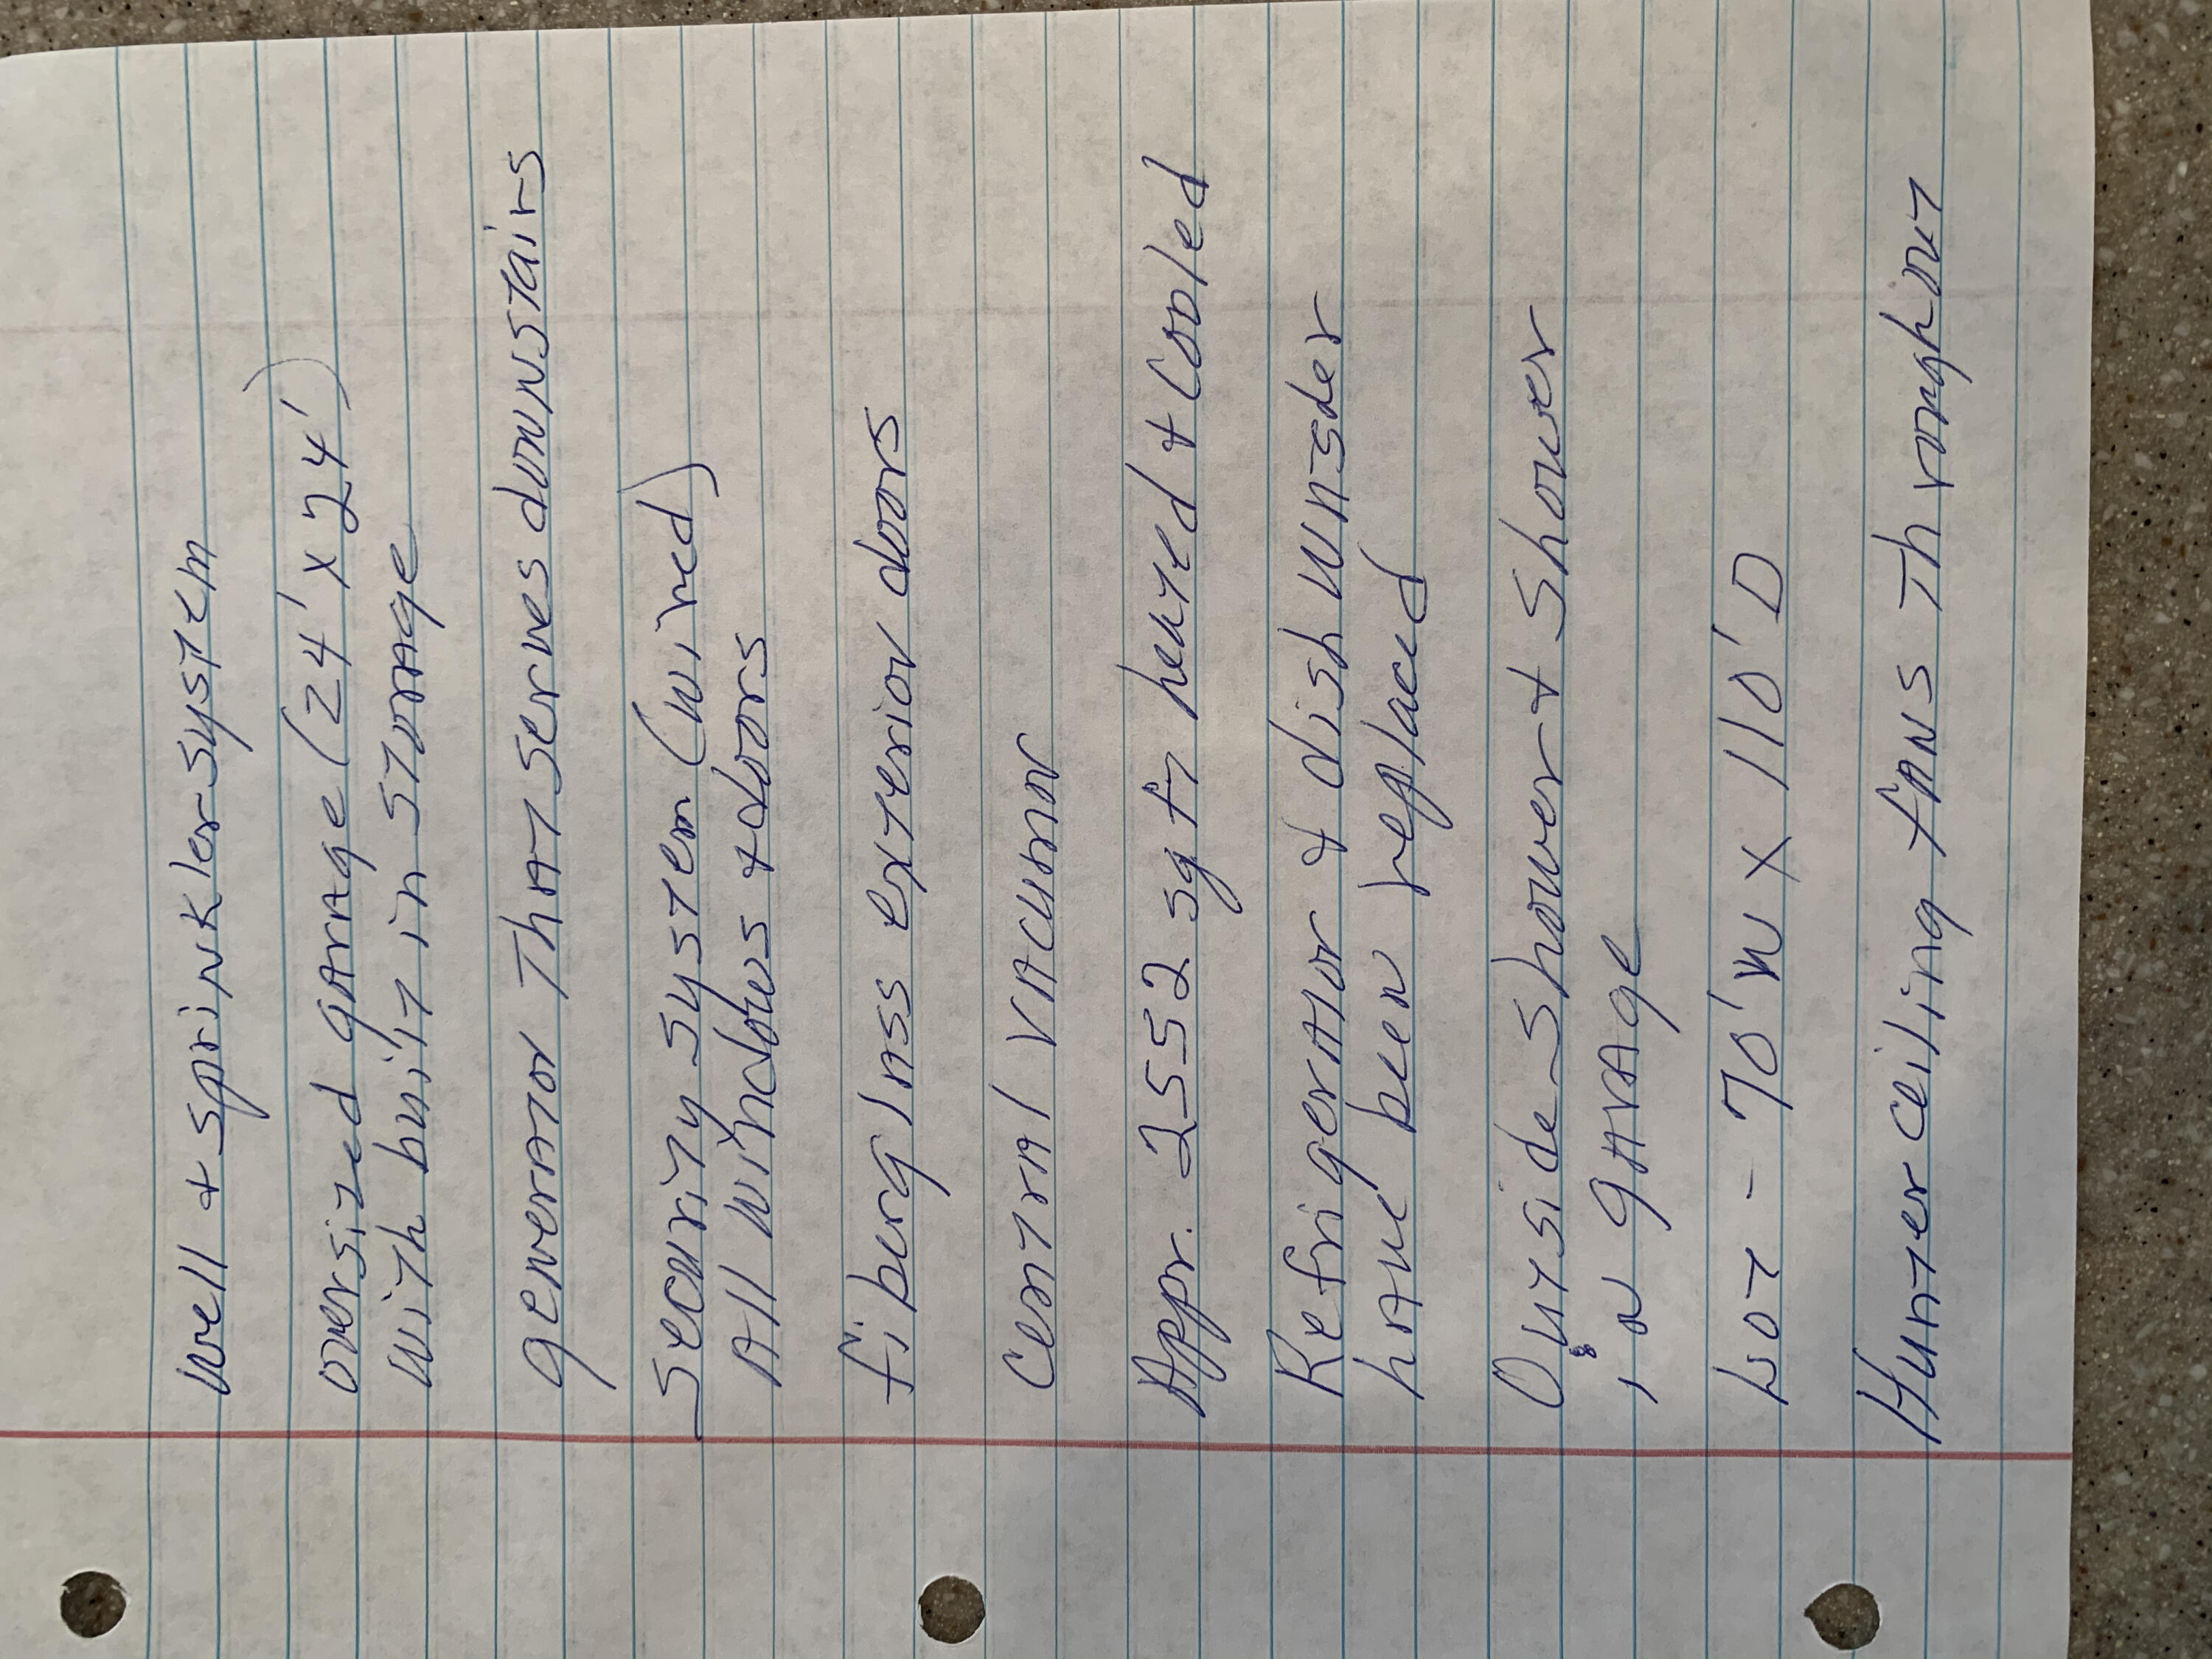 well + sprinkler system
oversized garage (24' x 24')
with built in storage
generator that serves downstairs
security system (wired)
All windows + doors
fiberglass exterior doors
Central vacumor
Appr. 2552 sq ft heated + cooled
Refrigerator + dish wnsder
have been replaced
Outside shower + shower
in garage
Lot - 70'W x 110'D
Hunter ceiling fans throughout